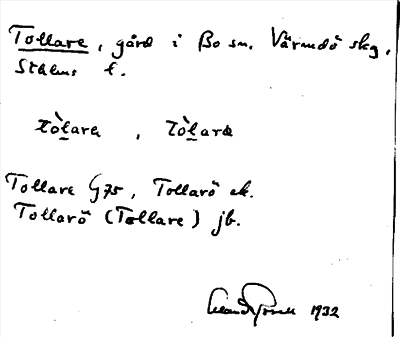 Tollare, gård i Bo sn. Värmdö skg,
Sthlms l.
tòlara, tòlarɐ
Tollare G75, Tollarö ek.
Tollarö (Tollare) jb.
1932